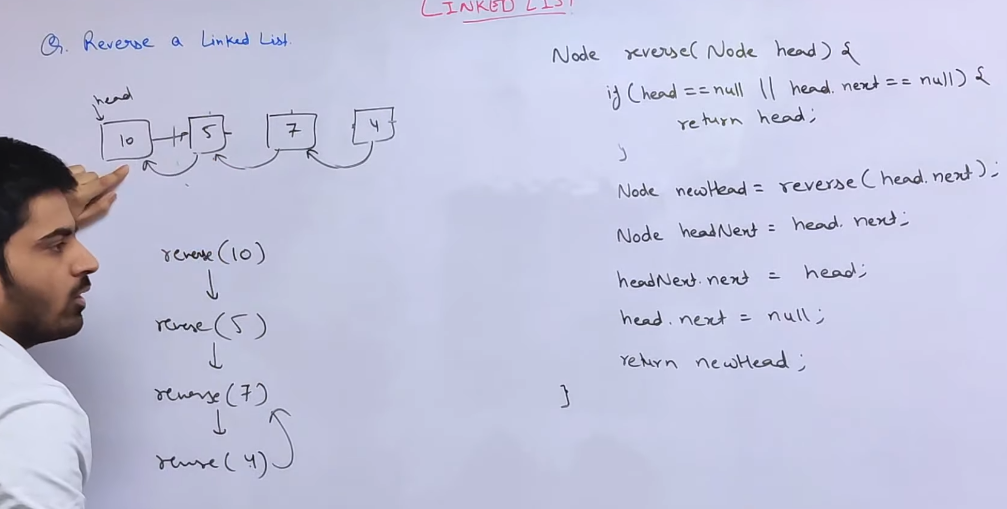 LINKED LIST
Q. Reverse a Linked List.
head
10 5 7 4
reverse(10)
reverse(5)
reverse(7)
reverse(4)
Node reverse(Node head) {
if (head == null || head.next == null) {
return head;
}
Node newHead = reverse(head.next);
Node headNext = head.next;
headNext.next = head;
head.next = null;
return newHead;
}